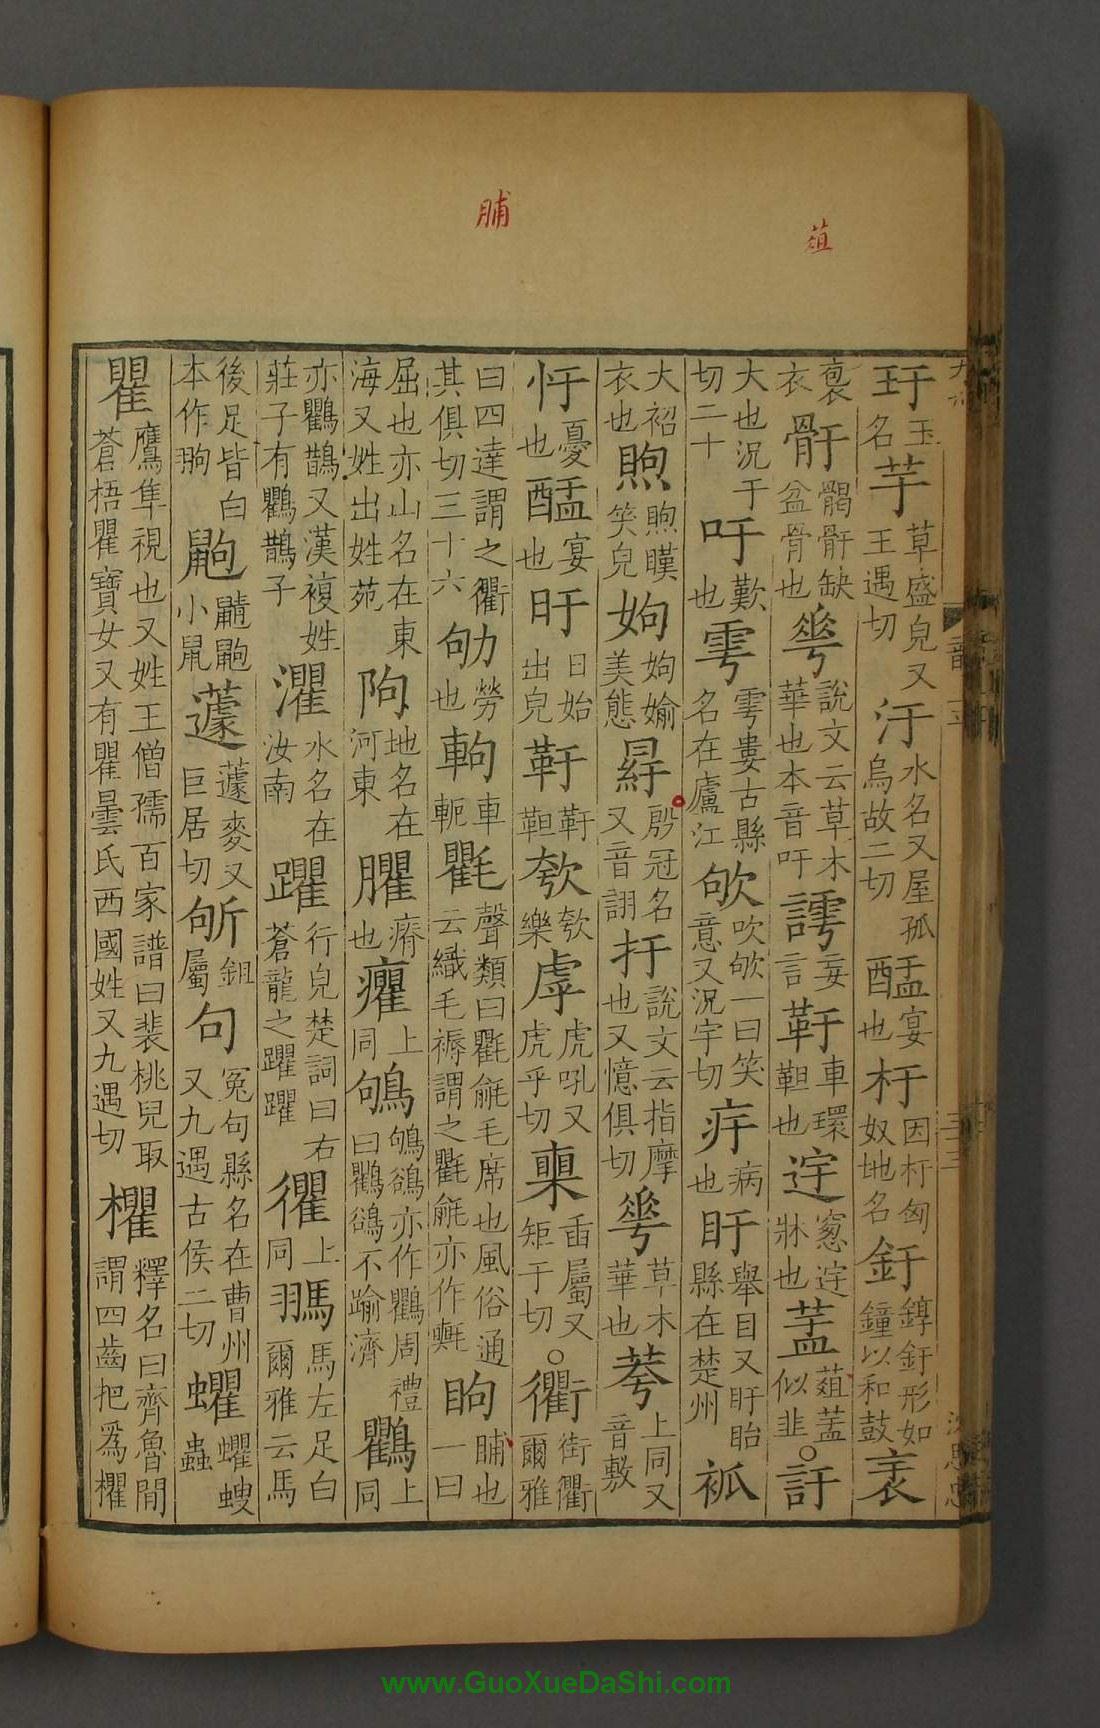 脯
葅
玗玉名芋草盛皃又王遇切汙水名又屋孤烏故二切㿻宴也杅因杅匈奴地名釪錞釪形如鐘以和鼓衧
褎衣骬䯏骬缺盆骨也𠌶說文云草木華也本音吁謣妄言䩒車環靼也迃窻迃牀也䓝葅䓝似韭○訏
大也況于切二十吁歎也雩雩婁古縣名在廬江欨吹欨一曰笑意又況宇切疞病也盱舉目又盱眙縣在楚州袑
大袑衣也煦煦暵笑皃姁姁媮美態冔殷冠名又音詡扜說文云指摩也又憶俱切𠌶草木華也荂上同又音敷
忓憂也㿻宴也旴日始出皃䩒䩒靼㰲㰲樂虖虎吼又虎乎切㮚臿屬又矩于切○衢街衢爾雅
曰四達謂之衢其俱切三十六劬勞也軥車軶氍聲類曰氍毹毛席也風俗通云織毛褥謂之氍毹亦作㲘朐脯也一曰
屈也亦山名在東海又姓出姓苑䧁地名在河東臞瘠也癯上同鴝鴝鵒亦作鸜周禮曰鸜鵒不踰濟鸜上同
亦鸜鵲又漢複姓莊子有鸜鵲子灈水名在汝南躣行皃楚詞曰右蒼龍之躣躣忂上同𦐛馬左足白爾雅云馬
後足皆白本作䀠鼩鼱鼩小鼠蘧蘧麥又巨居切斪鉏屬句冤句縣名在曹州又九遇古侯二切蠷蠷螋蟲
瞿鷹隼視也又姓王僧孺百家譜曰裴桃兒取蒼梧瞿寶女又有瞿曇氏西國姓又九遇切欋釋名曰齊魯閒謂四齒杷爲欋
www.GuoXueDaShi.com